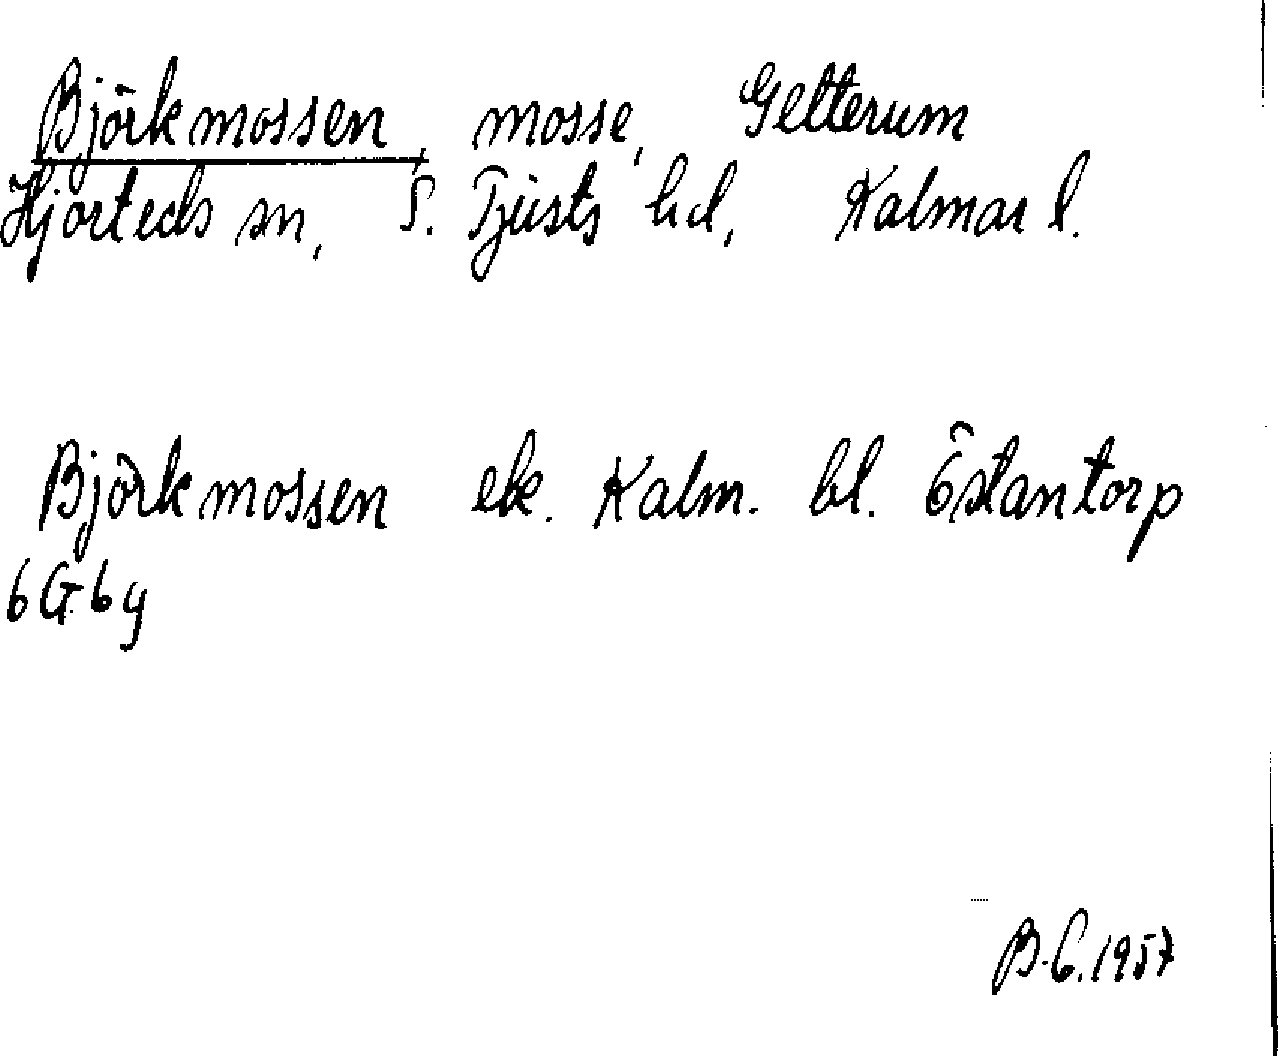 Björkmossen, mosse, Gelterum
Hjorteds sn, S. Tjusts hd, Kalmar l.
Björkmossen ek. Kalm. bl. Östantorp
6G6g
B.C. 1957